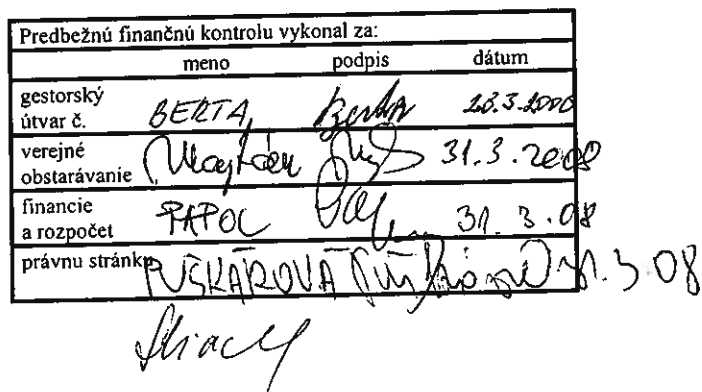 Predbežnú finančnú kontrolu vykonal za:
meno podpis dátum
gestorský útvar č. BERTA Berta
verejné obstarávanie 31.3.2008
financie a rozpočet PAPOL 31.3.08
právnu stránku PUŠKÁROVÁ 31.3.08